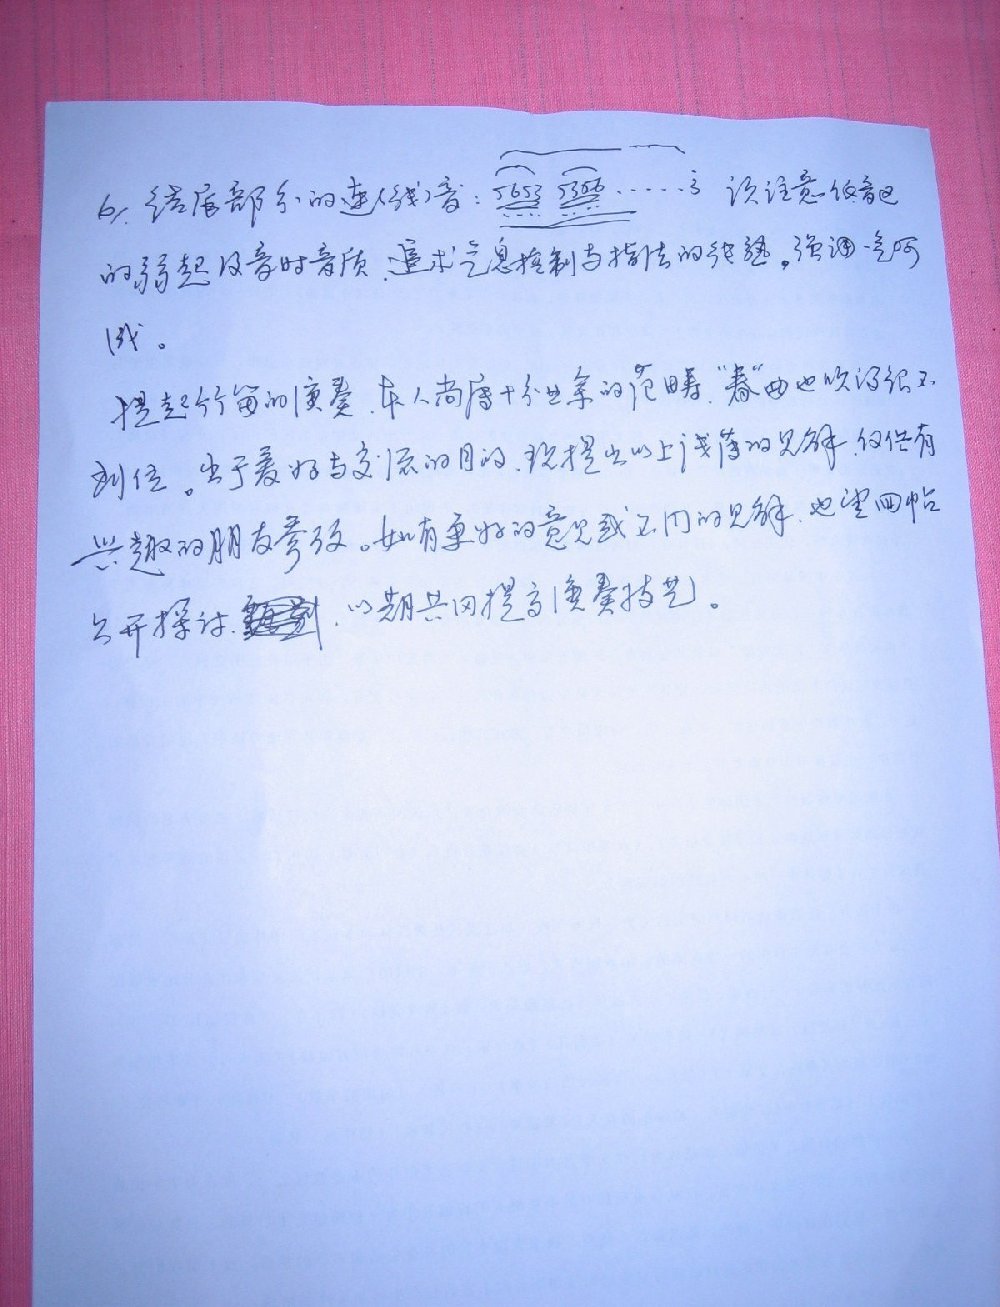 6. 结尾部分的连(线)音: 5653 5306 ......3 该注意低音
的弱起及音时音质、追求气息控制与指法的娴熟。强调一气呵
成。
提起竹笛的演奏、本人尚属十分业余的范畴、"春"曲也吹得很不
到位。出于爱好与交流的目的、现提出以上浅薄的见解、仅供有
兴趣的朋友参考。如有更好的意见或不同的见解、也望回帖
公开探讨、以期共同提高演奏技艺。